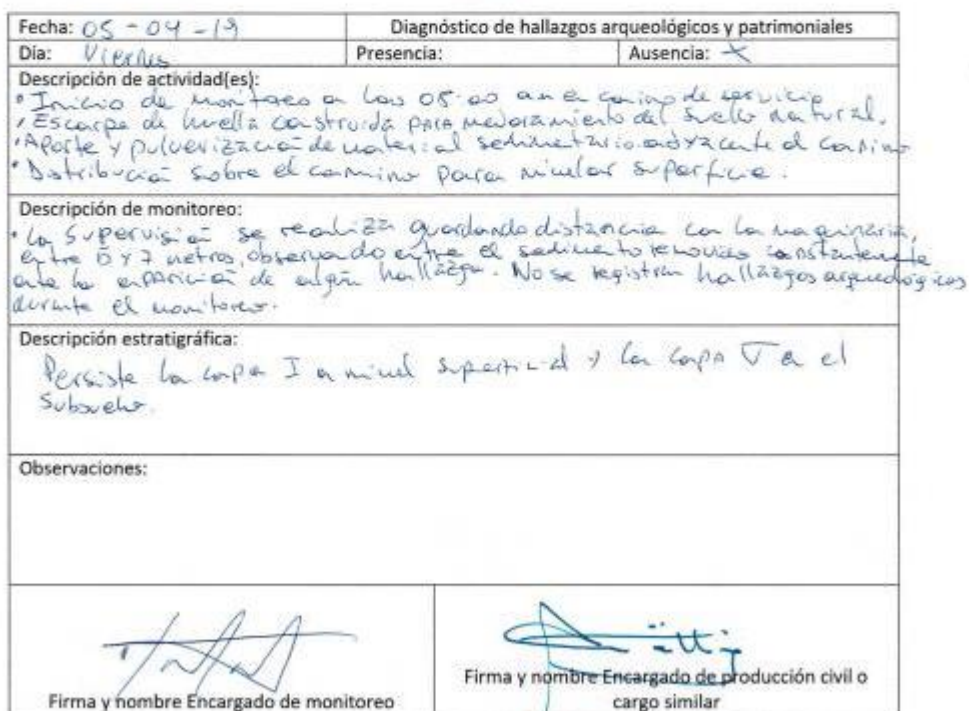 Fecha: 05-04-19 Diagnóstico de hallazgos arqueológicos y patrimoniales
Día: Viernes Presencia: Ausencia: X
Descripción de actividad(es):
• Inicio de monitoreo a las 08:00 am en camino de servicio
• Escarpe de huella construida para mejoramiento del suelo natural.
• Aporte y pulverización de material sedimentario adyacente al camino
• Distribución sobre el camino para nivelar superficie.
Descripción de monitoreo:
• La supervisión se realiza guardando distancia con la maquinaria,
entre 5 y 7 metros, observando entre el sedimento removido constantemente
ante la aparición de algún hallazgo. No se registran hallazgos arqueológicos
durante el monitoreo.
Descripción estratigráfica:
Persiste la capa I a nivel superficial y la capa V en el
Subsuelo.
Observaciones:
Firma y nombre Encargado de monitoreo
Firma y nombre Encargado de producción civil o
cargo similar